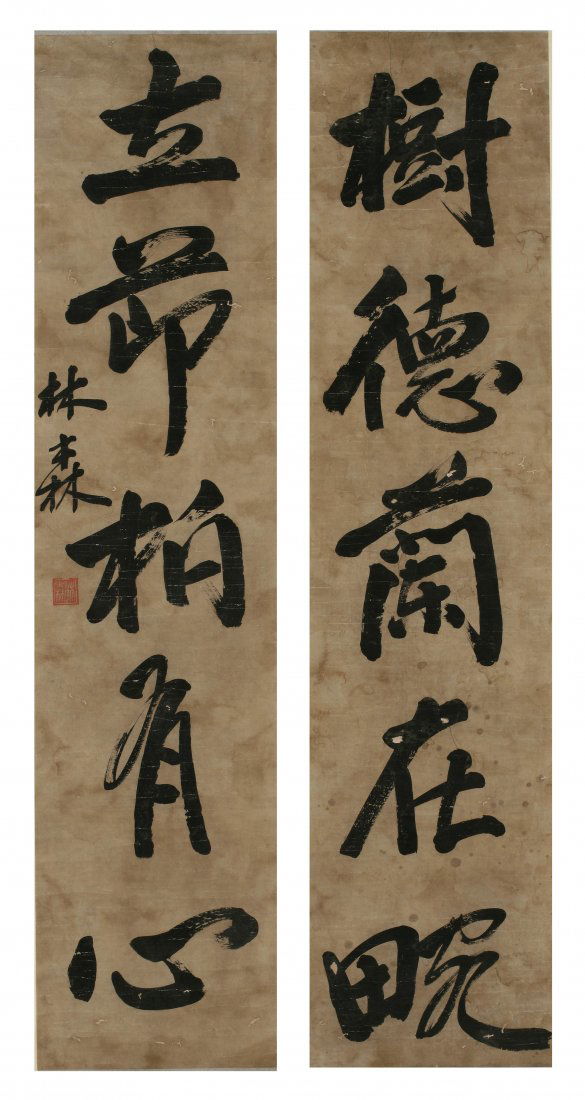 樹德蘭在畹
立節柏有心
林森